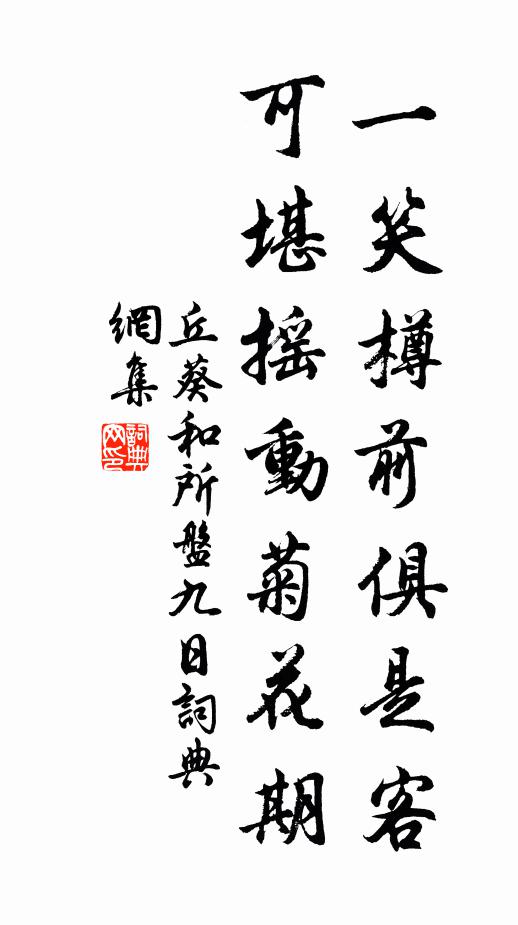 一笑樽前俱是客
可堪摇動菊花期
丘葵和所盤九日詞典
網集
詞典
网印